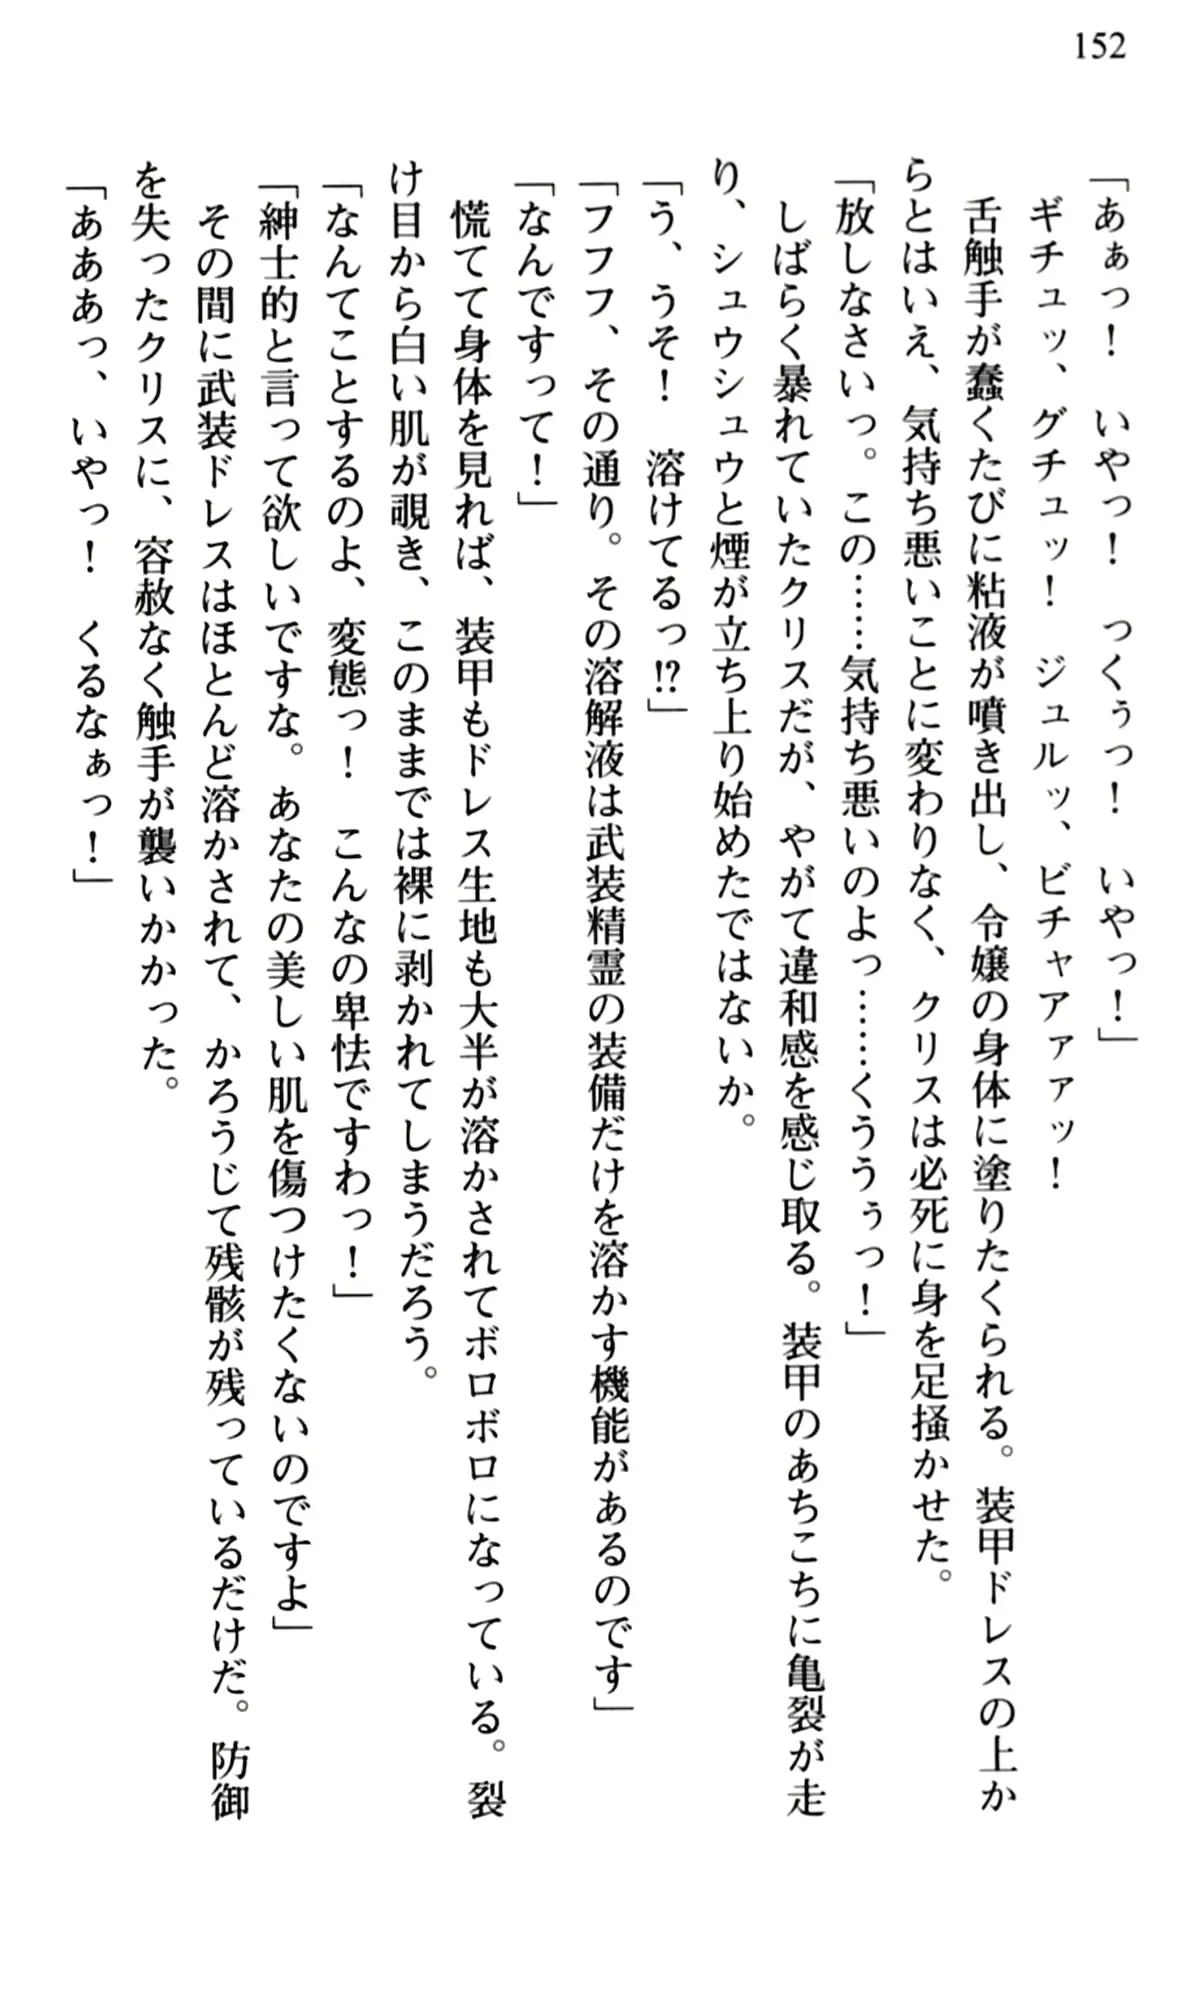 152
「あぁっ！　いやっ！　つくぅっ！　いやっ！」
ギチュッ、グチュッ！　ジュルッ、ビチャアァァッ！
舌触手が蠢くたびに粘液が噴き出し、令嬢の身体に塗りたくられる。装甲ドレスの上か
らとはいえ、気持ち悪いことに変わりなく、クリスは必死に身を足掻かせた。
「放しなさいっ。この……気持ち悪いのよっ……くううぅっ！」
しばらく暴れていたクリスだが、やがて違和感を感じ取る。装甲のあちこちに亀裂が走
り、シュウシュウと煙が立ち上り始めたではないか。
「う、うそ！　溶けてるっ!?」
「フフフ、その通り。その溶解液は武装精霊の装備だけを溶かす機能があるのです」
「なんですって！」
慌てて身体を見れば、装甲もドレス生地も大半が溶かされてボロボロになっている。裂
け目から白い肌が覗き、このままでは裸に剥かれてしまうだろう。
「なんてことするのよ、変態っ！　こんなの卑怯ですわっ！」
「紳士的と言って欲しいですな。あなたの美しい肌を傷つけたくないのですよ」
その間に武装ドレスはほとんど溶かされて、かろうじて残骸が残っているだけだ。防御
を失ったクリスに、容赦なく触手が襲いかかった。
「あああっ、いやっ！　くるなぁっ！」